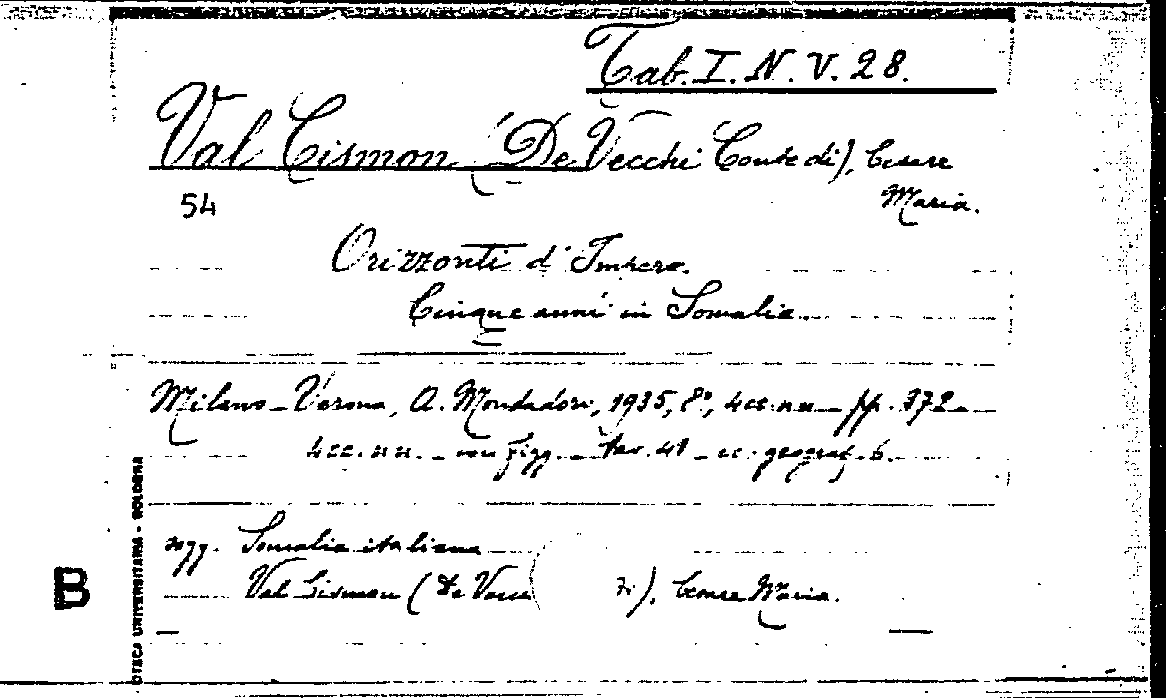 Tab. I. N. V. 28.
Val Cismon (De Vecchi Conte di), Cesare
Maria.
54
Orizzonti d'Impero.
Cinque anni in Somalia
Milano-Verona, A. Mondadori, 1935, 8°, 4 cc. nn. - pp. 372 -
4 cc. nn. - con figg. - tav. 41 - cc. geograf. 6.
sogg. Somalia italiana
Val Cismon (De Vecc i), Cesare Maria.
B
OTECA UNIVERSITARIA - BOLOGNA